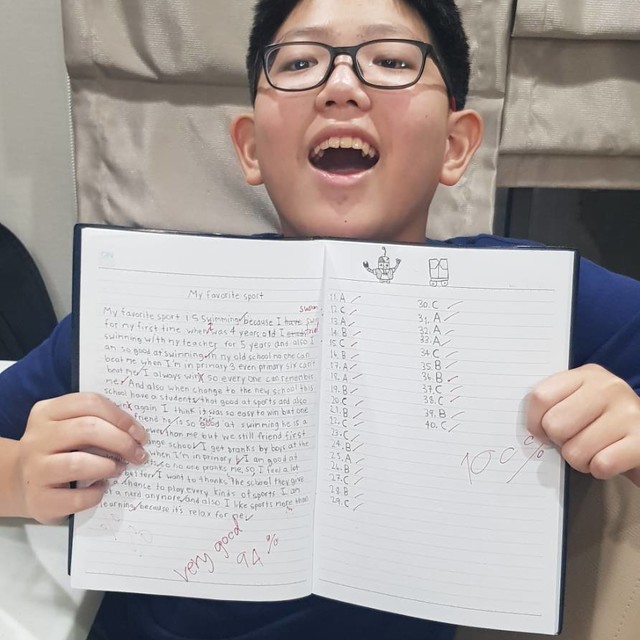 My favorite sport
swam
My favorite sport is Swimming because I
for my first time when I was 4 years old I
swimming with my teacher for 5 years and also I
am so good at swimming in my old school no one can
beat me when I'm in primary 3 even primary six can't
beat me I always win so every one can remember
me And also when change to the new school this
school have a students that good at sports and also
again I think it was so easy to win but one
friend he is so good at swimming he is a
than me but we still friend first
change school I get pranks by boys
when I'm in primary I am good
so no one pranks me so I feel a lot
better I want to thanks the school they give
chance to play every kinds of sports I am
a nerd anymore and also I like sports more than
learning because it's relax for me
very good
94%
11. A
12. C
13. A
14. B
15. C
16. B
17. A
18. A
19. B
20. C
21. B
22. C
23. C
24. B
25. A
26. B
27. C
28. B
29. C
30. C
31. A
32. A
33. A
34. C
35. B
36. B
37. C
38. C
39. B
40. C
100%